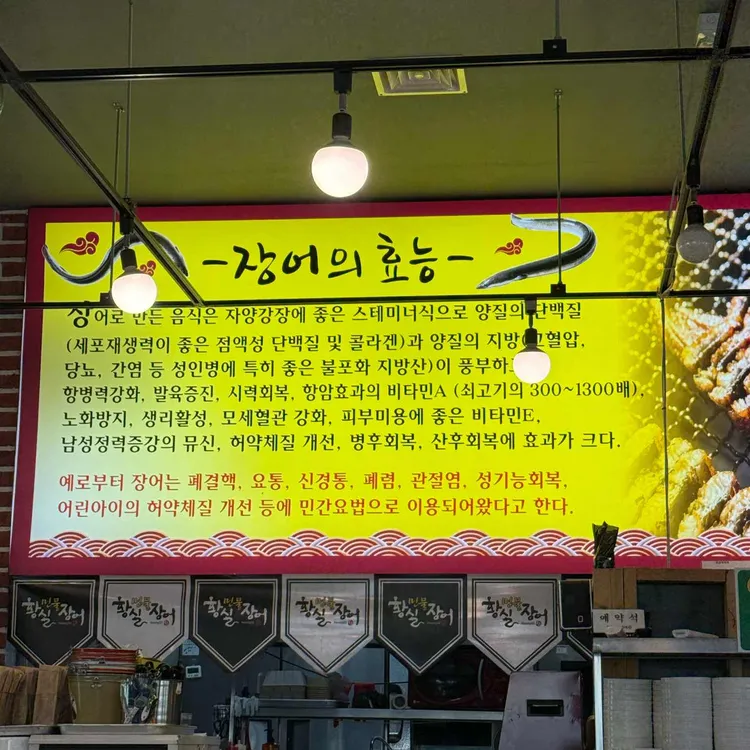 -장어의 효능-
장어로 만든 음식은 자양강장에 좋은 스테미너식으로 양질의 단백질
(세포재생력이 좋은 점액성 단백질 및 콜라겐)과 양질의 지방(고혈압,
당뇨, 간염 등 성인병에 특히 좋은 불포화 지방산)이 풍부하
항병력강화, 발육증진, 시력회복, 항암효과의 비타민A (쇠고기의 300~1300배),
노화방지, 생리활성, 모세혈관 강화, 피부미용에 좋은 비타민E,
남성정력증강의 뮤신, 허약체질 개선, 병후회복, 산후회복에 효과가 크다.
예로부터 장어는 폐결핵, 요통, 신경통, 폐렴, 관절염, 성기능회복,
어린아이의 허약체질 개선 등에 민간요법으로 이용되어왔다고 한다.
민물 황실장어
민물 황실장어
민물 황실장어
민물 황실장어
민물 황실장어
민물 황실장어
예약석